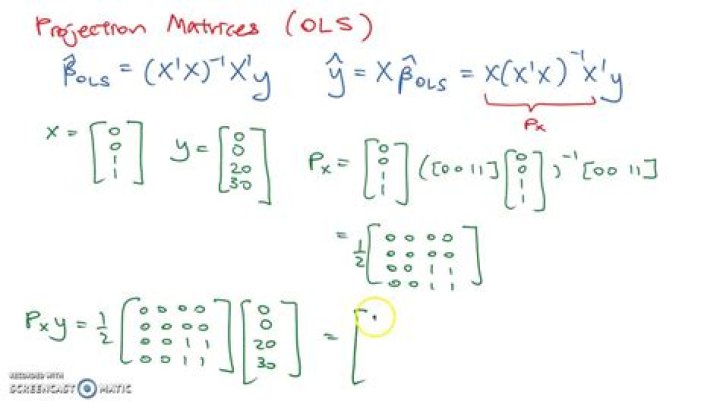 Projection Matrices (OLS)
β̂OLS = (X'X)⁻¹X'y    ŷ = Xβ̂OLS = X(X'X)⁻¹X'y
Px
X = [0 0 1 1]    y = [0 0 20 30]    Px = [0 0 1 1] ([0 0 1 1] [0 0 1 1])⁻¹ [0 0 1 1]
= 1/2 [0 0 0 0
0 0 0 0
0 0 1 1
0 0 1 1]
Pxy = 1/2 [0 0 0 0
0 0 0 0
0 0 1 1
0 0 1 1] [0 0 20 30] = [
RECORDED WITH
SCREENCAST MATIC